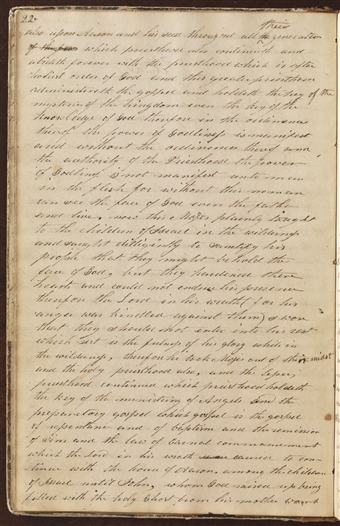 22
their
also upon Aaron and his seed throughout all the generation
of the which priesthood also continueth and
abideth forever with the priesthood which is after
holiest order of God and this greater priesthood
administereth the gospel and holdeth the key of the
mysteries of the kingdom even the key of the
knowledge of God therefore in the ordinances
thereof the power of Godliness is manifest
and without the ordinances thereof and
the authority of the Priesthood the power
of Godliness is not manifest unto men
in the flesh for without this no man
can see the face of God even the father
and live, now this Moses plainly taught
to the children of Israel in the wilderness
and sought diligently to sanctify his
people that they might behold the
face of God, but they hardened their
hearts and could not endure his presence
therefore the Lord in his wrath (for his
anger was kindled against them) swore
that they should not enter into his rest
which rest is the fulness of his glory while in
the wilderness, therefore he took Moses out of their midst
and the holy priesthood also, and the lesser
priesthood continued which priesthood holdeth
the key of the ministring of Angels and the
preparatory gospel which gospel is the gospel
of repentance and of Baptism and the remission
of Sins and the law of carnal commandment
which the Lord in his wrath caused to con
tinue with the house of Aaron, among the children
of Israel until John, whom God raised up being
filled with the holy Ghost from his mother womb